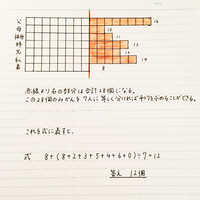 父
母
祖母
姉
兄
私
弟
16
10
11
13
14
8
赤線より右の部分は合計28個になる。
この28個のみかんを7人に等しく分ければことができる。
これを式に表すと、
式 8+(8+2+3+5+4+6+0)÷7=12
答え 12個